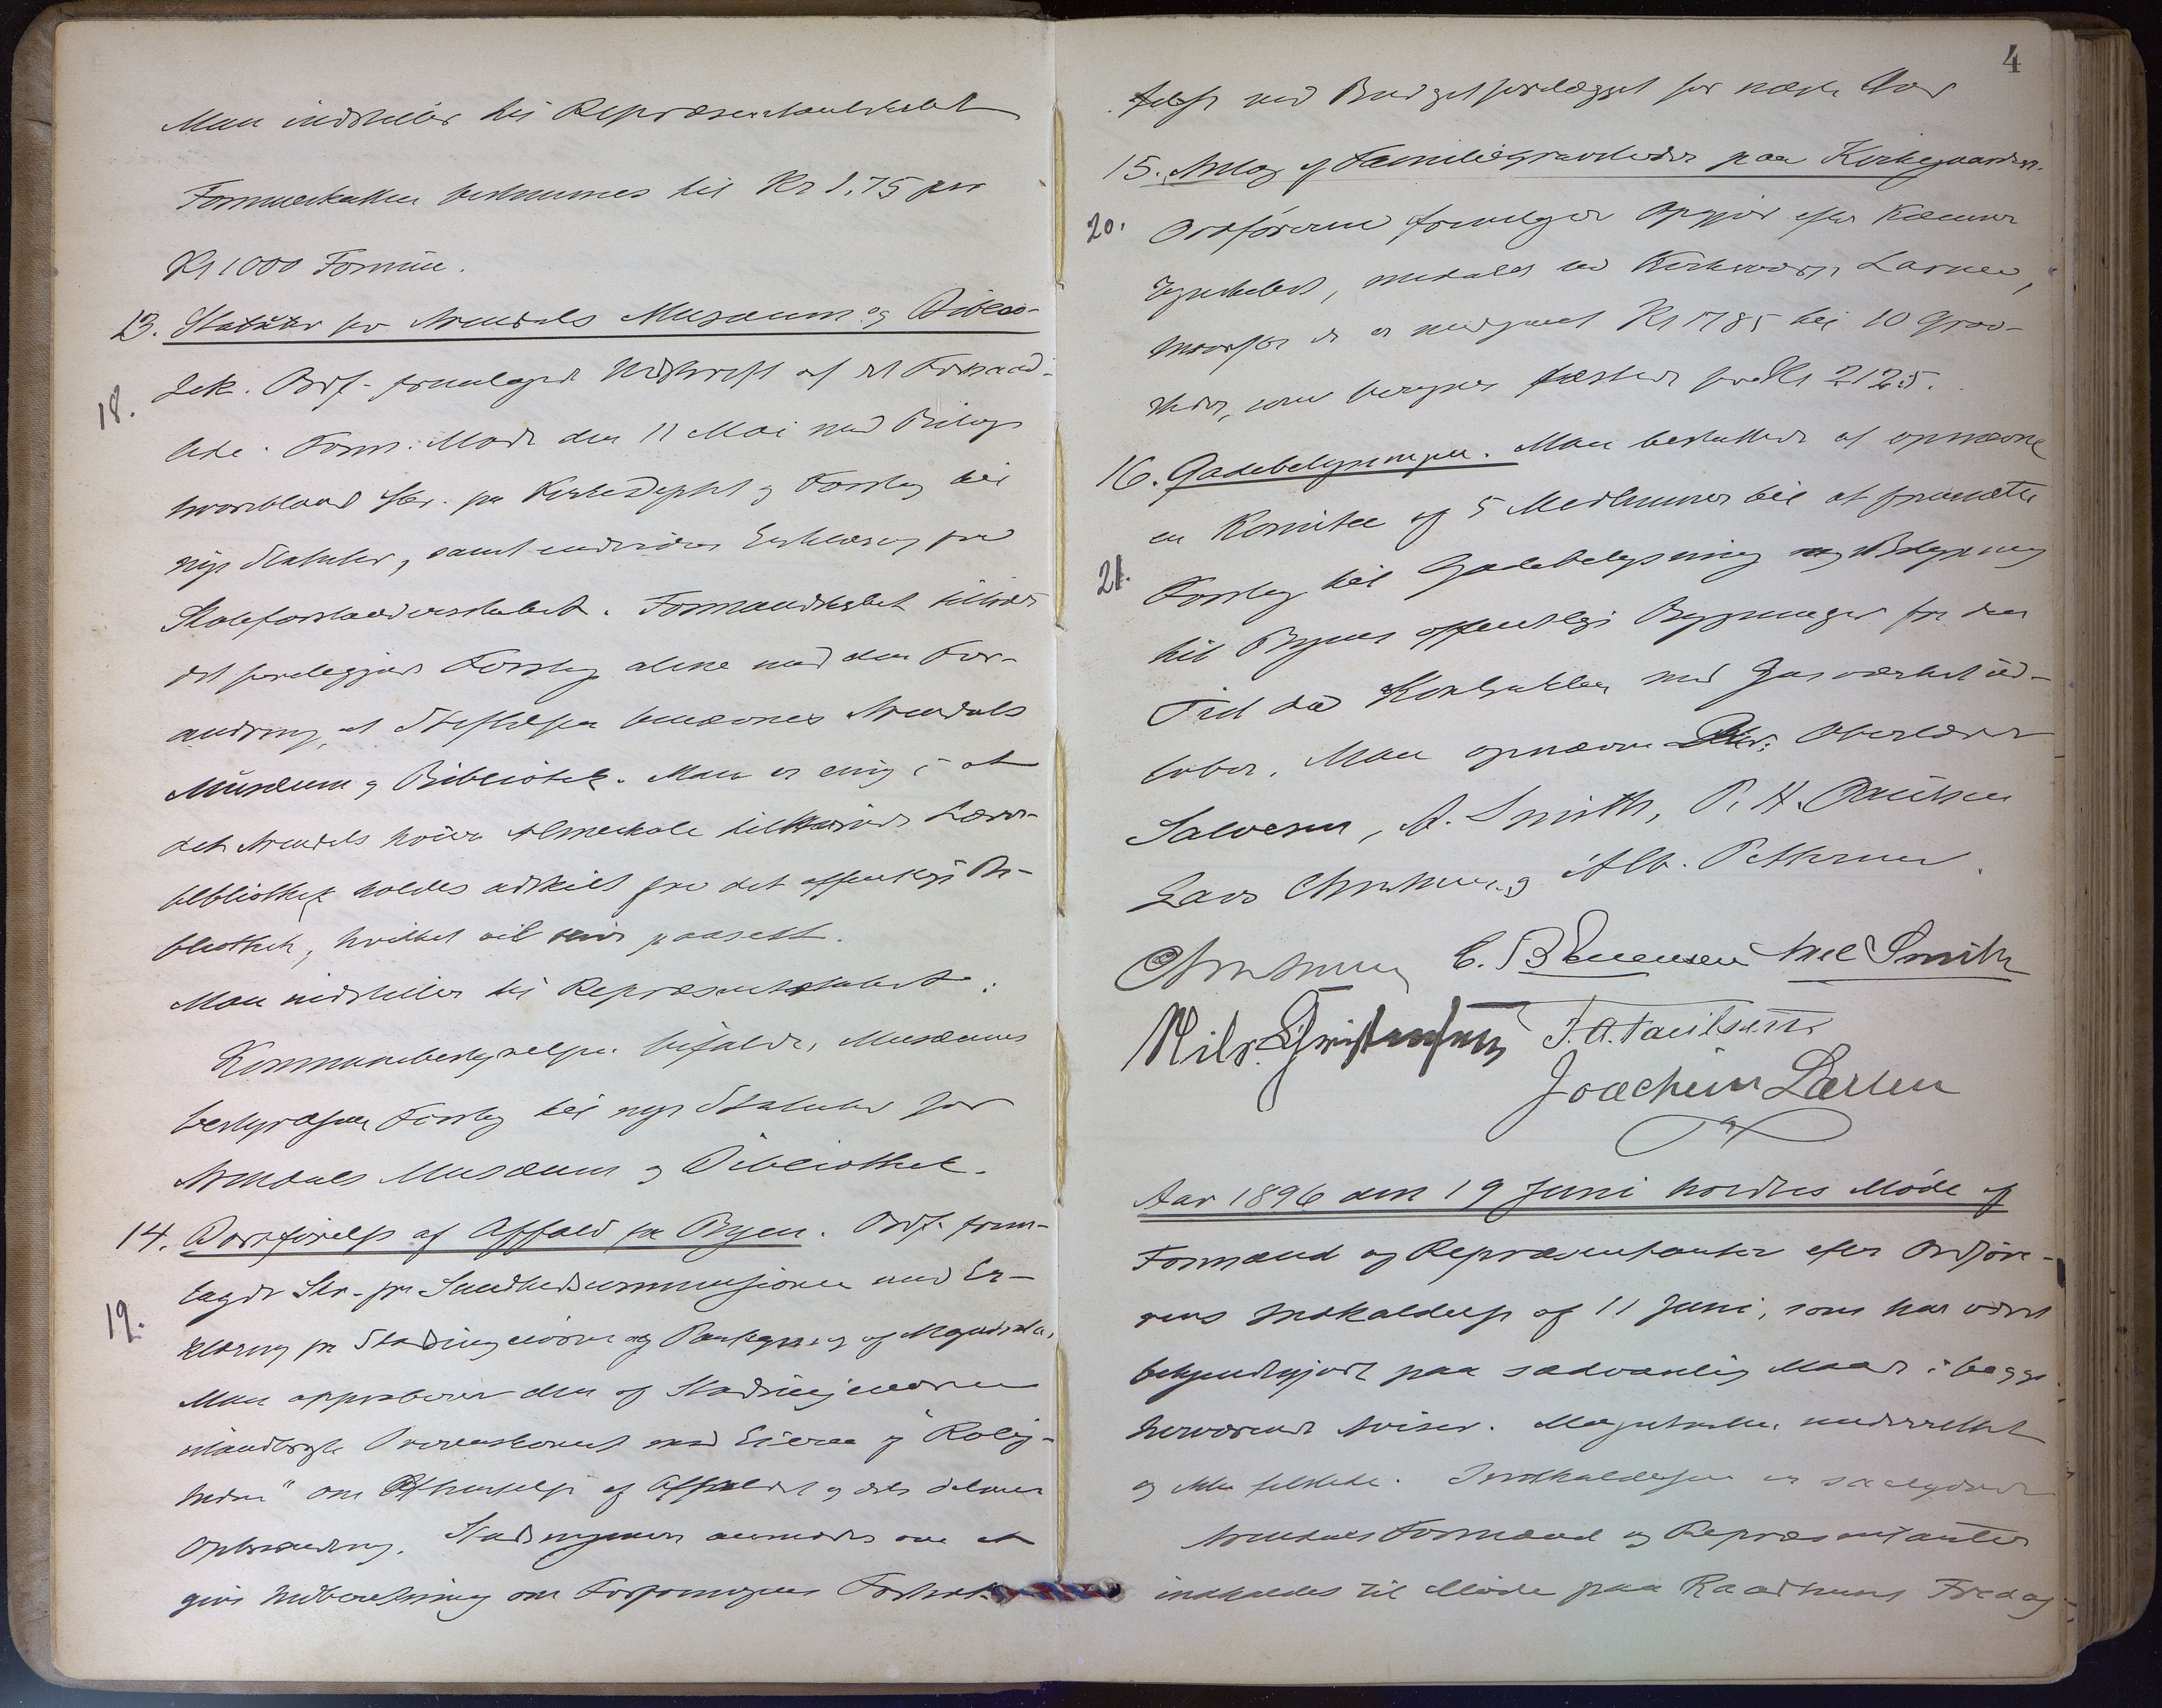 Man indstiller til Repræsentantskabet
Formueskatten bestemmes til Kr 1,75 per
Kr 1000 Formue.
13. Statuter for Arendals Musæum og Biblio-
18. tek. Ordf. fremlagde Udskrift af det
Form. Møde den 11 Mai med Bilag
hvoriblandt Skr. fra Kirkedeptet og Forslag til
nye Statuter, samt Erklæring fra
Skoleforstanderskabet. Formandskabet tiltræder
det foreliggende Forslag alene med den For-
andring, at Stiftelsen benævnes Arendals
Musæum og Bibliotek. Man er enig i at
det Arendals høiere Almenskole tilhørende Lærer-
bibliothek holdes adskilt fra det offentlige Bi-
bliothek, hvilket vil blive paaseet.
Man indstiller til Repræsentskabet:
Kommunebestyrelsen bifalder Musæums
bestyrelsens Forslag til nye Statuter for
Arendals Musæum og Bibliothek.
14. Bortførelse af Affald fra Byen. Ordf. frem-
19. lagde Skr. fra Sundhedskommissionen med Er-
klæring fra Stadsingeniøren og Paategning af Magistraten.
Man approberer den af Stadsingeniøren
Overenskomst med Eieren af "Rolig-
heden" om af Affaldet og dets
Opbrænding. Stadsingeniøren anmodes om at
give Indberetning om Forsøgningens
4
ved Budgetforslaget for næste Aar
15. Anlæg af Familiegravsteder paa Kirkegaarden.
20. Ordføreren fremlægger Opgjør efter Kæmner
Regnskabet, meddelt ved Kirkeværge Larsen,
hvorefter der er medgaaet Kr 1785 til 10 Grav-
steder, som beregnes fæstede for Kr 2125.
16. Gadebelysningen. Man besluttede at opnævne
en Komitee af 5 Medlemmer til at fremsætte
21. Forslag til Gadebelysning og Belysning
til Byens offentlige Bygninger fra den
Tid da Kontrakten med Gasværket ud-
løber. Man opnævner Overlærer
Salvesen, A. Smith, P. H. Paulsen
Lars Christensen og Alb. Pettersen.
Christensen C. B. Evensen Axel Smith
Nils Christensen J. A. Paulsen
Joachim Larsen
Aar 1896 den 19 Juni holdtes Møde af
Formænd og Repræsentanter efter Ordføre-
rens Indkaldelse af 11 Juni, som har været
bekjendtgjort paa sædvanlig Maade i begge
herværende Aviser. Magistraten underrettet
og ikke tilstede. Indkaldelsen er saalydende
Arendals Formænd og Repræsentanter
indkaldes til Møde paa Raadhuset Fredag